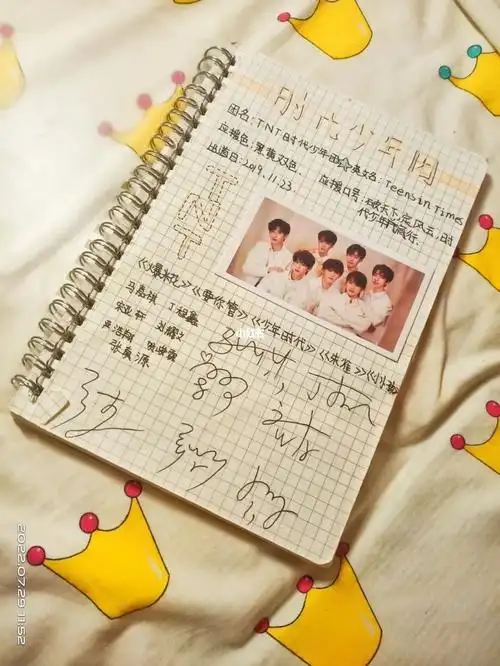 时代少年团
团名:TNT时代少年团☆英文名:Teens in Times
应援色:黑黄双色、 应援口号:破天下,定风云,时
出道日:2019.11.23. 代少年代风行.
TNT
《爆米花》《要你管》《少年时代》《朱雀》《小小孩》
马嘉祺 丁程鑫
宋亚轩 刘耀文
严浩翔 贺峻霖
张真源
小红书
2022.07.29 11:52